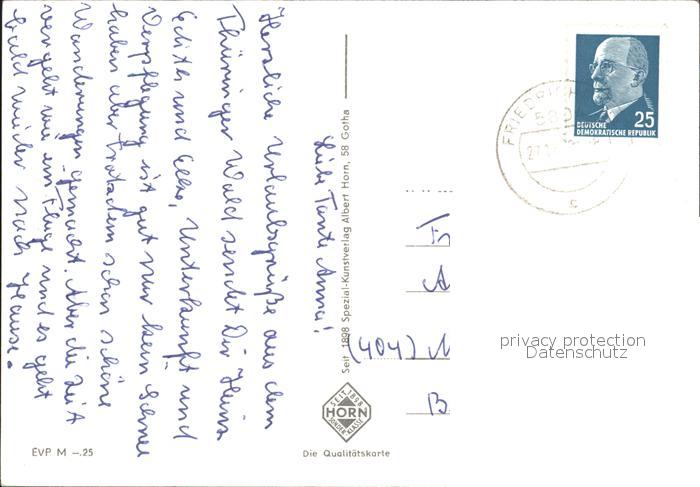 Liebe Tante Anna!
Herzliche Urlaubsgrüße aus dem
Thüringer Wald sendet Dir Heinz
Edith und Elke, Unterkunft und
Verpflegung ist gut nur kein Schnee
haben aber trotzdem schon schöne
Wanderungen gemacht. Aber die Zeit
vergeht wie im Fluge und es geht
bald wieder nach Hause.
Seit 1898 Spezial-Kunstverlag Albert Horn, 58 Gotha
SEIT 1898
HORN
SONDER KLASSE
Die Qualitätskarte
EVP M –.25
FRIEDRICH
580
27.
c
25
DEUTSCHE
DEMOKRATISCHE REPUBLIK
Fr
A
(404) N
B
privacy protection
Datenschutz